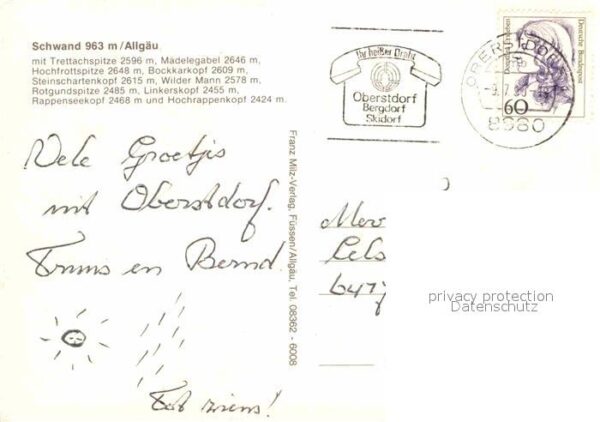 Schwand 963 m/Allgäu
mit Trettachspitze 2596 m, Mädelegabel 2646 m,
Hochfrottspitze 2648 m, Bockkarkopf 2609 m,
Steinschartenkopf 2615 m, Wilder Mann 2578 m,
Rotgundspitze 2485 m, Linkerskopf 2455 m,
Rappenseekopf 2468 m und Hochrappenkopf 2424 m.
Ihr heißer Draht
Oberstdorf
Bergdorf
Skidorf
OBERSTDORF
8980
Deutsche Bundespost
60
Vele Groetjes
mit Oberstdorf.
Truus en Bernd.
Tot ziens!
Franz Milz-Verlag, Füssen/Allgäu, Tel. 08362 - 6008
Mev
privacy protection
Datenschutz